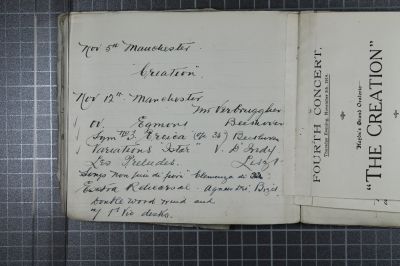 Nov 5th Manchester.
"Creation".
Nov 12th Manchester
Mr Verbrugghen
Ov. Egmont Beethoven
Symth 3. Eroica (Op. 55) Beethoven
Variations "Istar" V. D'Indy
Les Preludes. Liszt
Songs "Non piu di fiori" Clemenza di
Extra Rehearsal - Agnus Dei, Bizet
Double wood wind and
1st Vio desks.
FOURTH CONCERT.
Thursday Evening, November 5th,
Haydn's Grand Oratorio—
"THE CREATION"